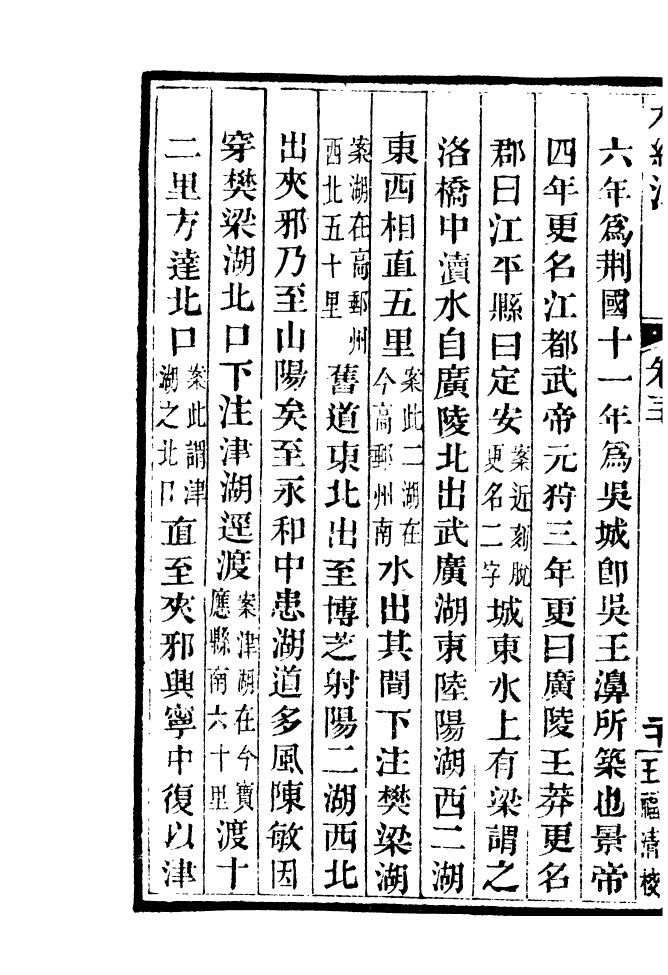 水經注 卷三 二十 王福清校
六年爲荆國十一年爲吳城卽吳王濞所築也景帝
四年更名江都武帝元狩三年更曰廣陵王莽更名
郡曰江平縣曰定安案近刻脫更名二字城東水上有梁謂之
洛橋中瀆水自廣陵北出武廣湖東陸陽湖西二湖
東西相直五里案此二湖在今高郵州南水出其間下注樊梁湖
案湖在高郵州西北五十里舊道東北出至博芝射陽二湖西北
出夾邪乃至山陽矣至永和中患湖道多風陳敏因
穿樊梁湖北口下注津湖逕渡案津湖在今寶應縣南六十里渡十
二里方達北口案此謂津湖之北口直至夾邪興寧中復以津